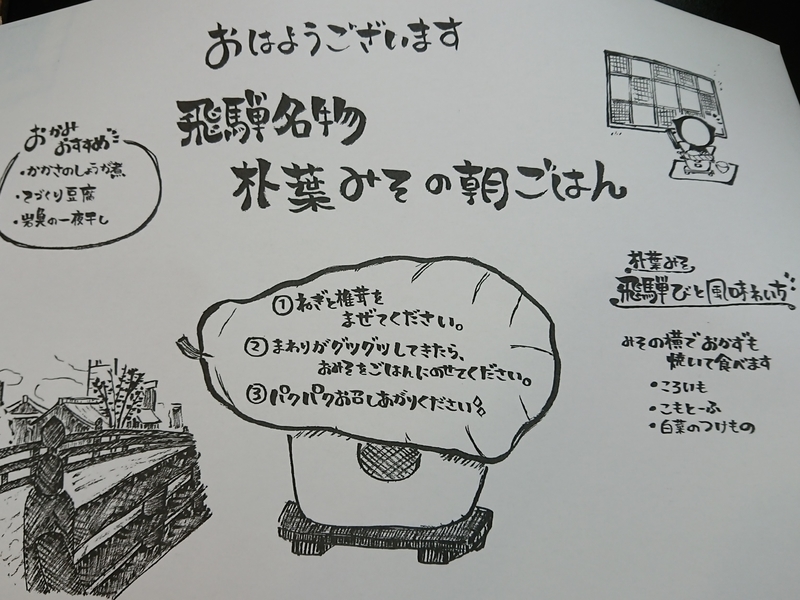 おはようございます
飛騨名物
朴葉みその朝ごはん
おかみ
おすすめ
・かかさのしょうが煮
・てづくり豆腐
・岩魚の一夜干し
①ねぎと椎茸を
まぜてください。
②まわりがグツグツしてきたら、
おみそをごはんにのせてください。
③パクパクお召しあがりください
朴葉みそ
飛騨びと風味わいち
みその横でおかずも
焼いて食べます
・ころいも
・こもとーふ
・白菜のつけもの